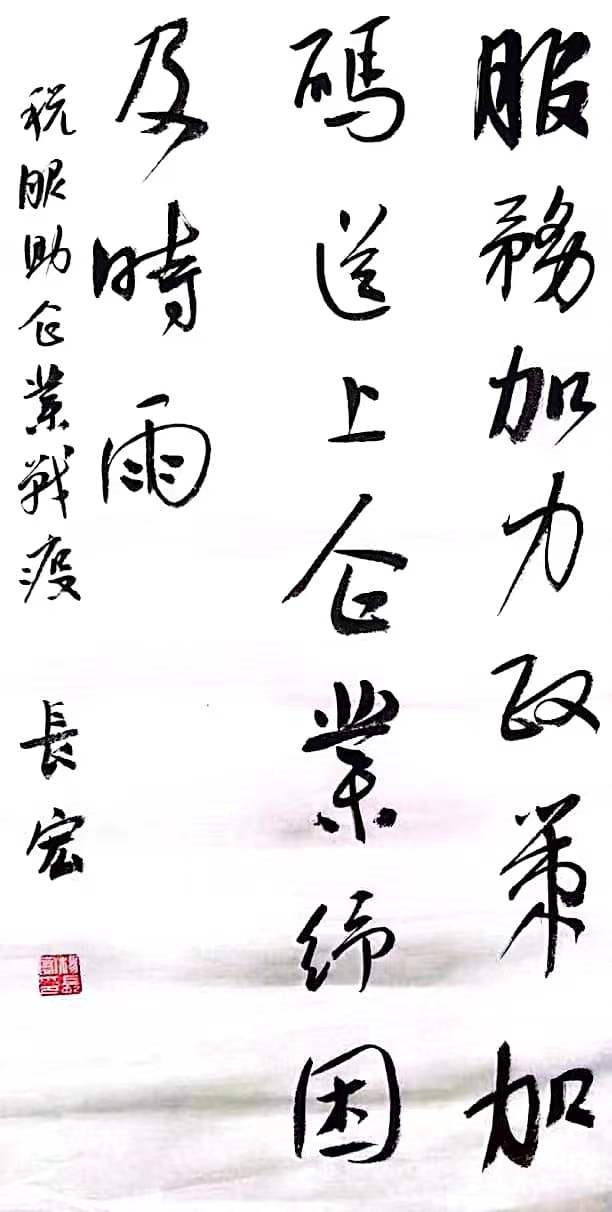 服務加力政策加
碼送上企業紓困
及時雨
税服助企業戰疫 長宏